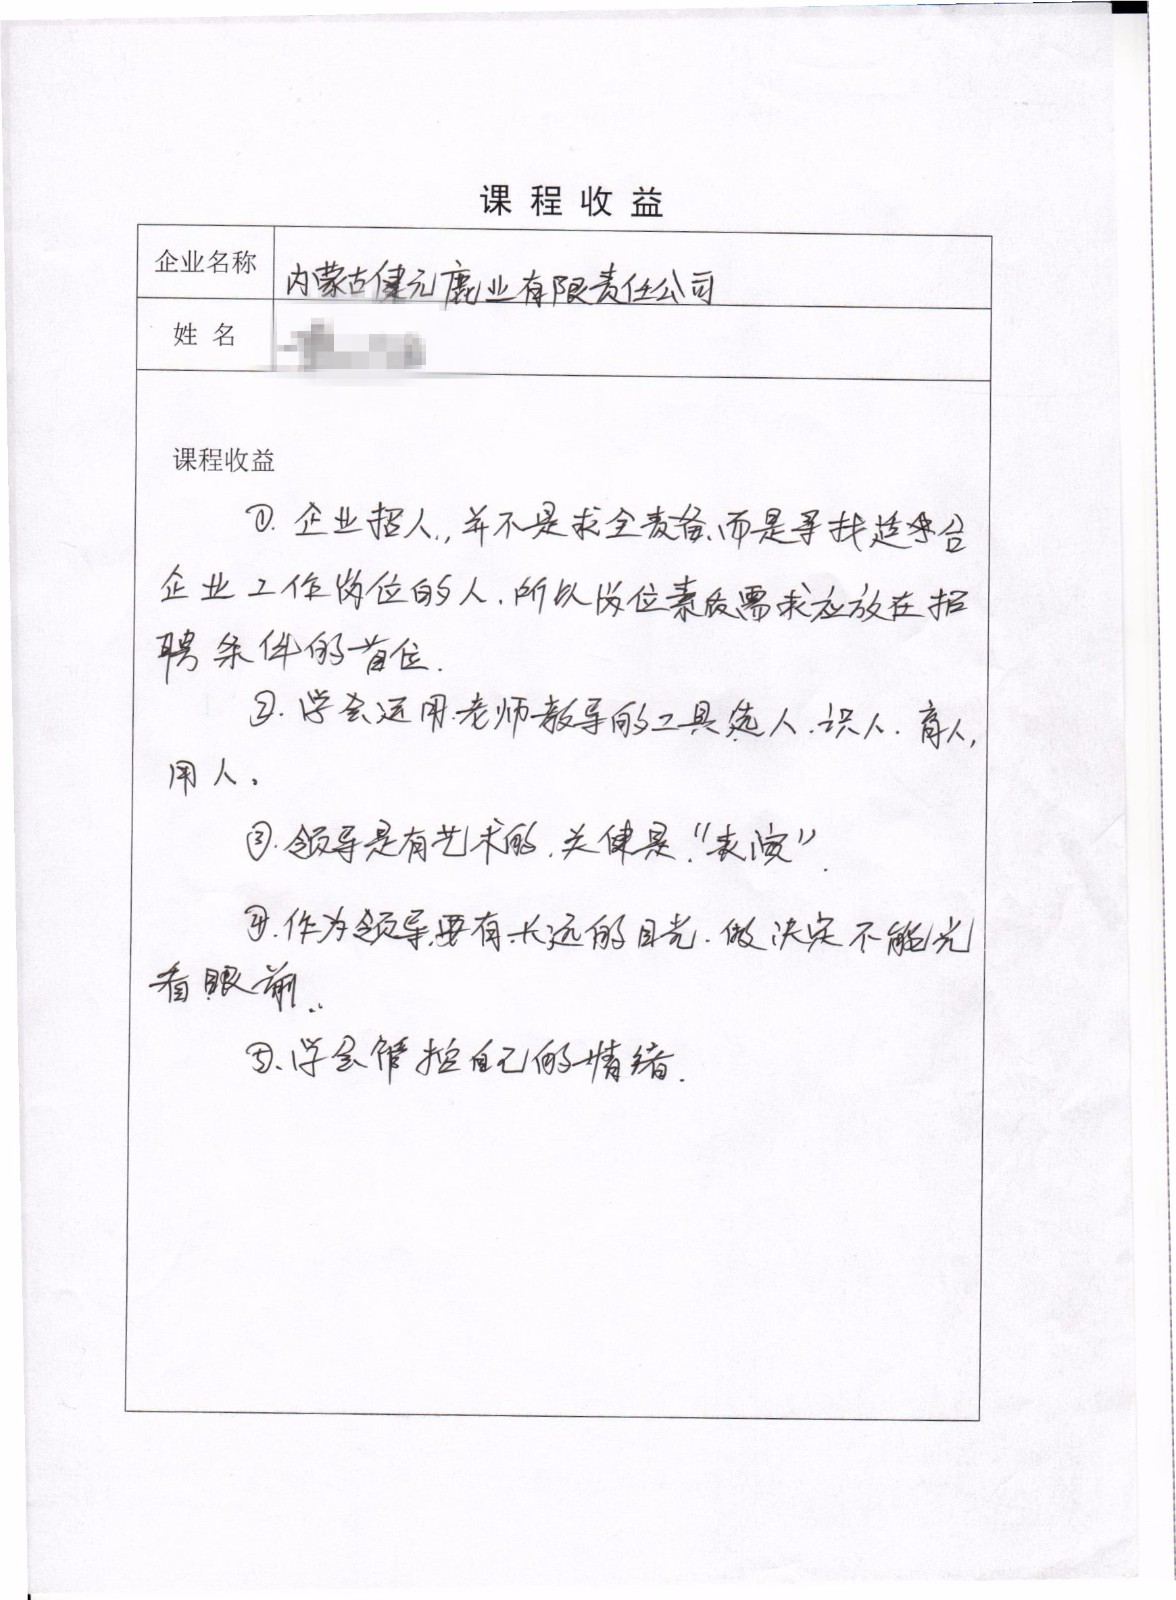 课程收益
企业名称 内蒙古健元鹿业有限责任公司
姓名
课程收益
①.企业招人,,并不是求全责备、而是寻找适合
企业工作岗位的人.所以岗位素质需求应放在招
聘条件的首位.
②.学会运用老师教导的工具选人.识人.育人,
用人。
③.领导是有艺术的.关健是"表演".
④.作为领导,要有长远的目光.做决定不能光
看眼前..
⑤、学会管控自己的情绪.